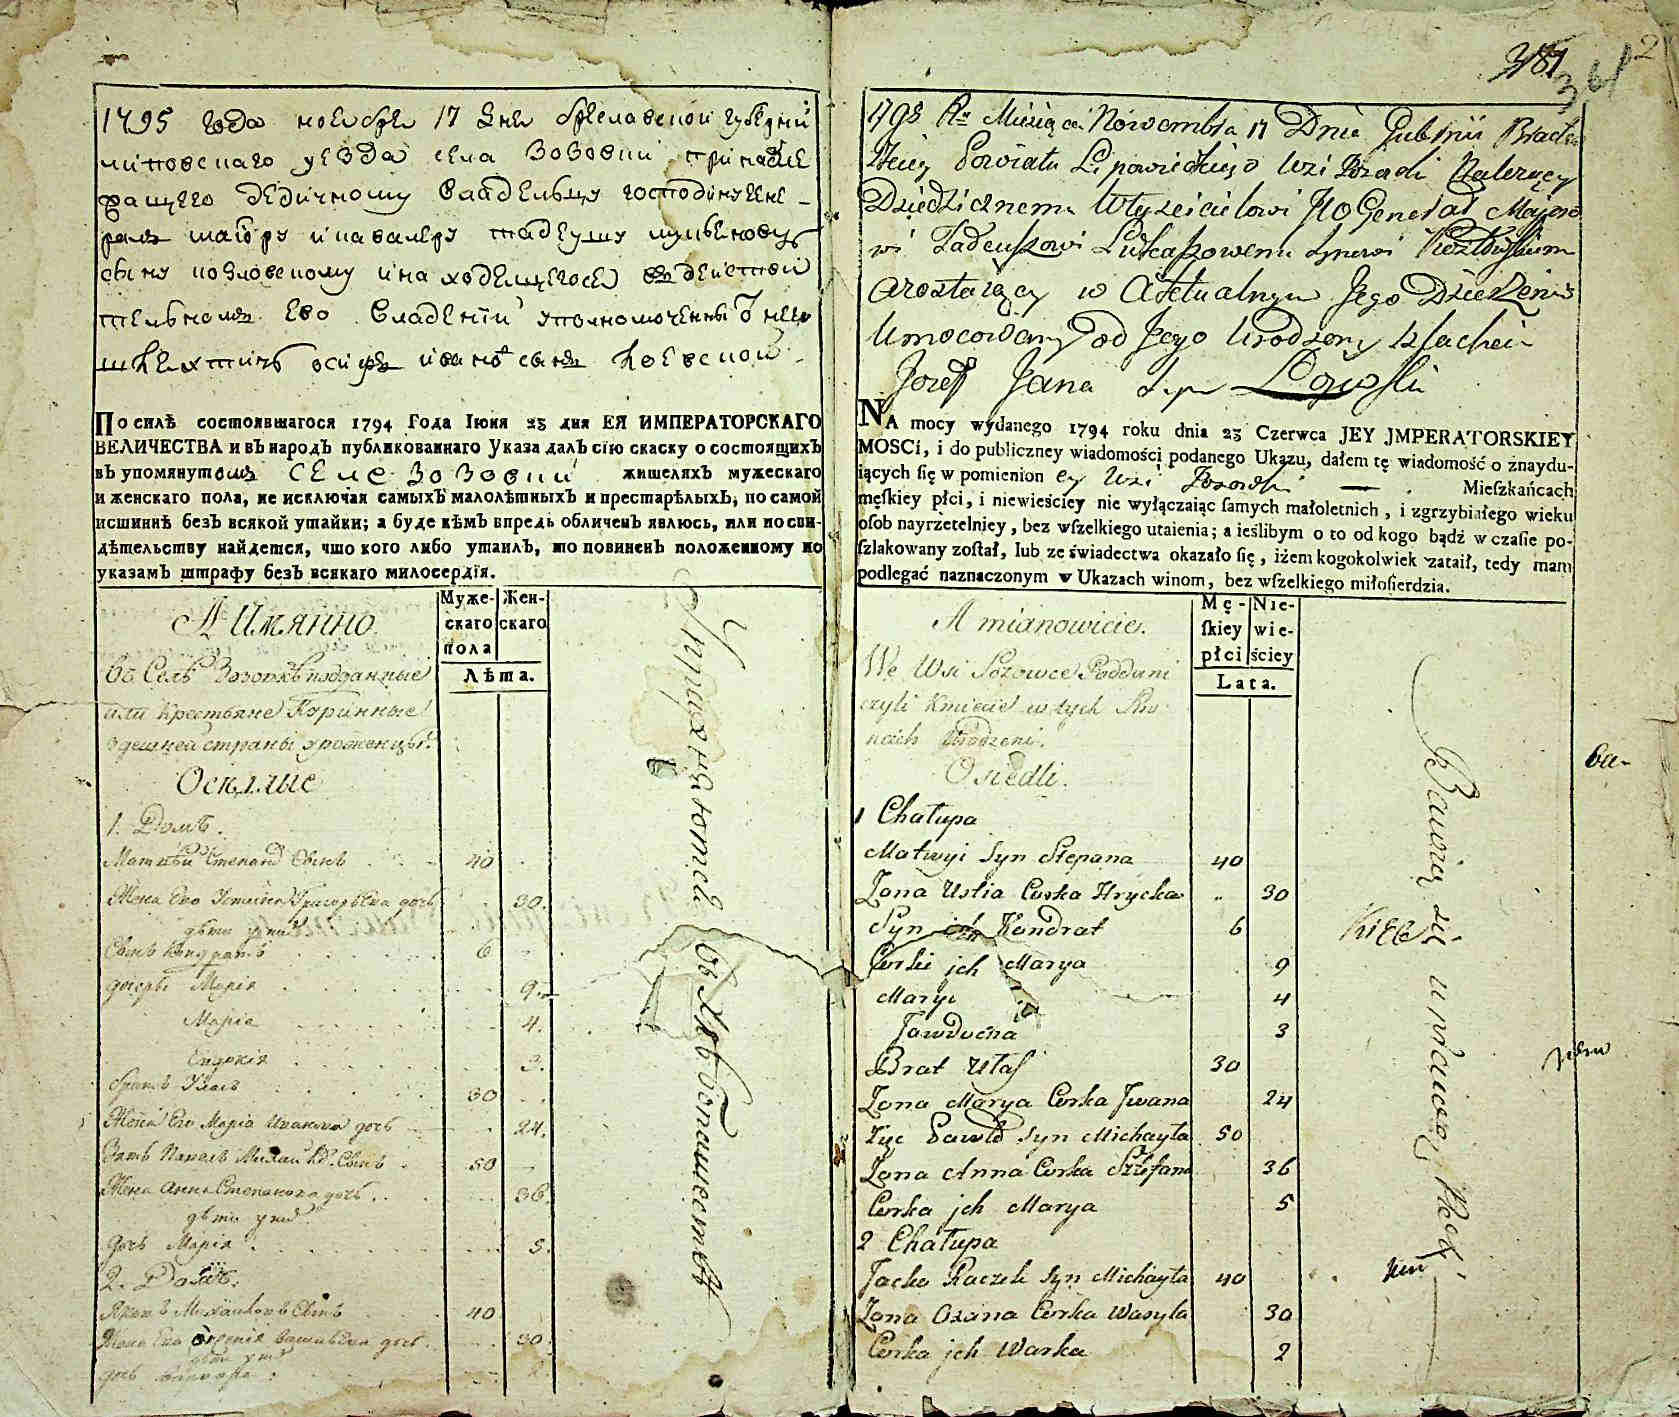 1795 года ноебре 17 дне бреславской губернии
липовецкаго уезда села Зозовки принадле
жащего дедичному владельцу господину гене-
ралъ маиору и кавалеру тадеушу
сыну козловскому и находещегосе въ действи
тельномъ его владении уполномоченны от него
шлехтичъ осипъ ивановъ сынъ
По силѣ состоявшагося 1794 Года Іюня 23 дня ЕЯ ИМПЕРАТОРСКАГО
ВЕЛИЧЕСТВА и въ народъ публикованнаго Указа далъ сію скаску о состоящихъ
въ упомянутомъ селе Зозовки жителяхъ мужескаго
и женскаго пола, не исключая самыхъ малолѣтныхъ и престарѣлыхъ, по самой
истиннѣ безъ всякой утайки; а буде кѣмъ впредь обличенъ явлюсь, или по сви-
дѣтельству найдется, что кого либо утаилъ, то повиненъ положенному по
указамъ штрафу безъ всякаго милосердія.
А Имянно
Муже-
скаго
пола
Жен-
скаго
Лѣта.
въ Селѣ Зозовкѣ подданные
или крестьяне
здешней страны уроженцы.
Оселые
1. Домъ.
Матвѣй Степановъ Сынъ 40
Жена Его Устинья Григорьева дочь 30.
дѣти у нихъ
Сынъ Кондратъ 6
дочери Марія 9.
Марія 4.
Евдокія 3.
братъ Уласъ 30
Жена Его Марія Иванова дочь 24.
Зять Павелъ Михайловъ Сынъ 50
Жена Анна Степанова дочь 36.
дѣти у нихъ
дочь Марія 5.
2. Домъ.
Яковъ Михайловъ Сынъ 40
Жена Его Васильева дочь 30.
дѣти у нихъ
дочь 2
Упражняются въ Хлѣбопашествѣ
381
361
2
1795 Ro Miesiąca Nowembra 17 Dnia Gubernii Bracław
skiey Powiatu Lipowieckiego Wsi Zozowki Należący
Dziedzicznemu Włascicielowi JP Generał Majoro
wi Tadeuszowi Łukaszowemu Synowi Kozłowskiemu
a zostaiący w Aktualnym Jego Dzierżeniu
Umocowany od Jego Urodzony Szlachcic
Jozef Jana Syn
NA mocy wydanego 1794 roku dnia 23 Czerwca JEY JMPERATORSKIEY
MOSCi, i do publiczney wiadomości podanego Ukazu, dałem tę wiadomość o znaydu-
iących ſię w pomienioney Wsi Zozowki Mieſzkańcach
męſkiey płci, i niewieściey nie wyłączaiąc ſamych małoletnich, i zgrzybiałego wieku
oſob nayrzetelniey, bez wſzelkiego utaienia; a ieślibym o to od kogo bądź w czaſie po-
ſzlakowany zoſtał, lub ze świadectwa okazało ſię, iżem kogokolwiek zataił, tedy mam
podlegać naznaczonym w Ukazach winom, bez wſzelkiego miłoſierdzia.
A mianowicie.
Mę-
ſkiey
płci
Nie-
wie-
ściey
Lata.
We Wsi Zozowce Poddani
czyli Kmiecie w tych Stro
nach Urodzeni.
Osiedli.
1 Chałupa
Matwyi Syn Stepana 40
Zona Ustia Corka Hrycka 30
Syn ich Kondrat 6
Corki ich Marya 9
Maryi 4
Jawdocha 3
Brat Ułas 30
Zona Marya Corka Jwana 24
Zięc Pawło Syn Michayła 50
Zona Anna Corka Sztefana 36
Corka ich Marya 5
2 Chałupa
Jacko Raczek Syn Michayła 40
Zona Oxana Corka Wasyla 30
Corka ich Warka 2
Bawią się uprawą Roli